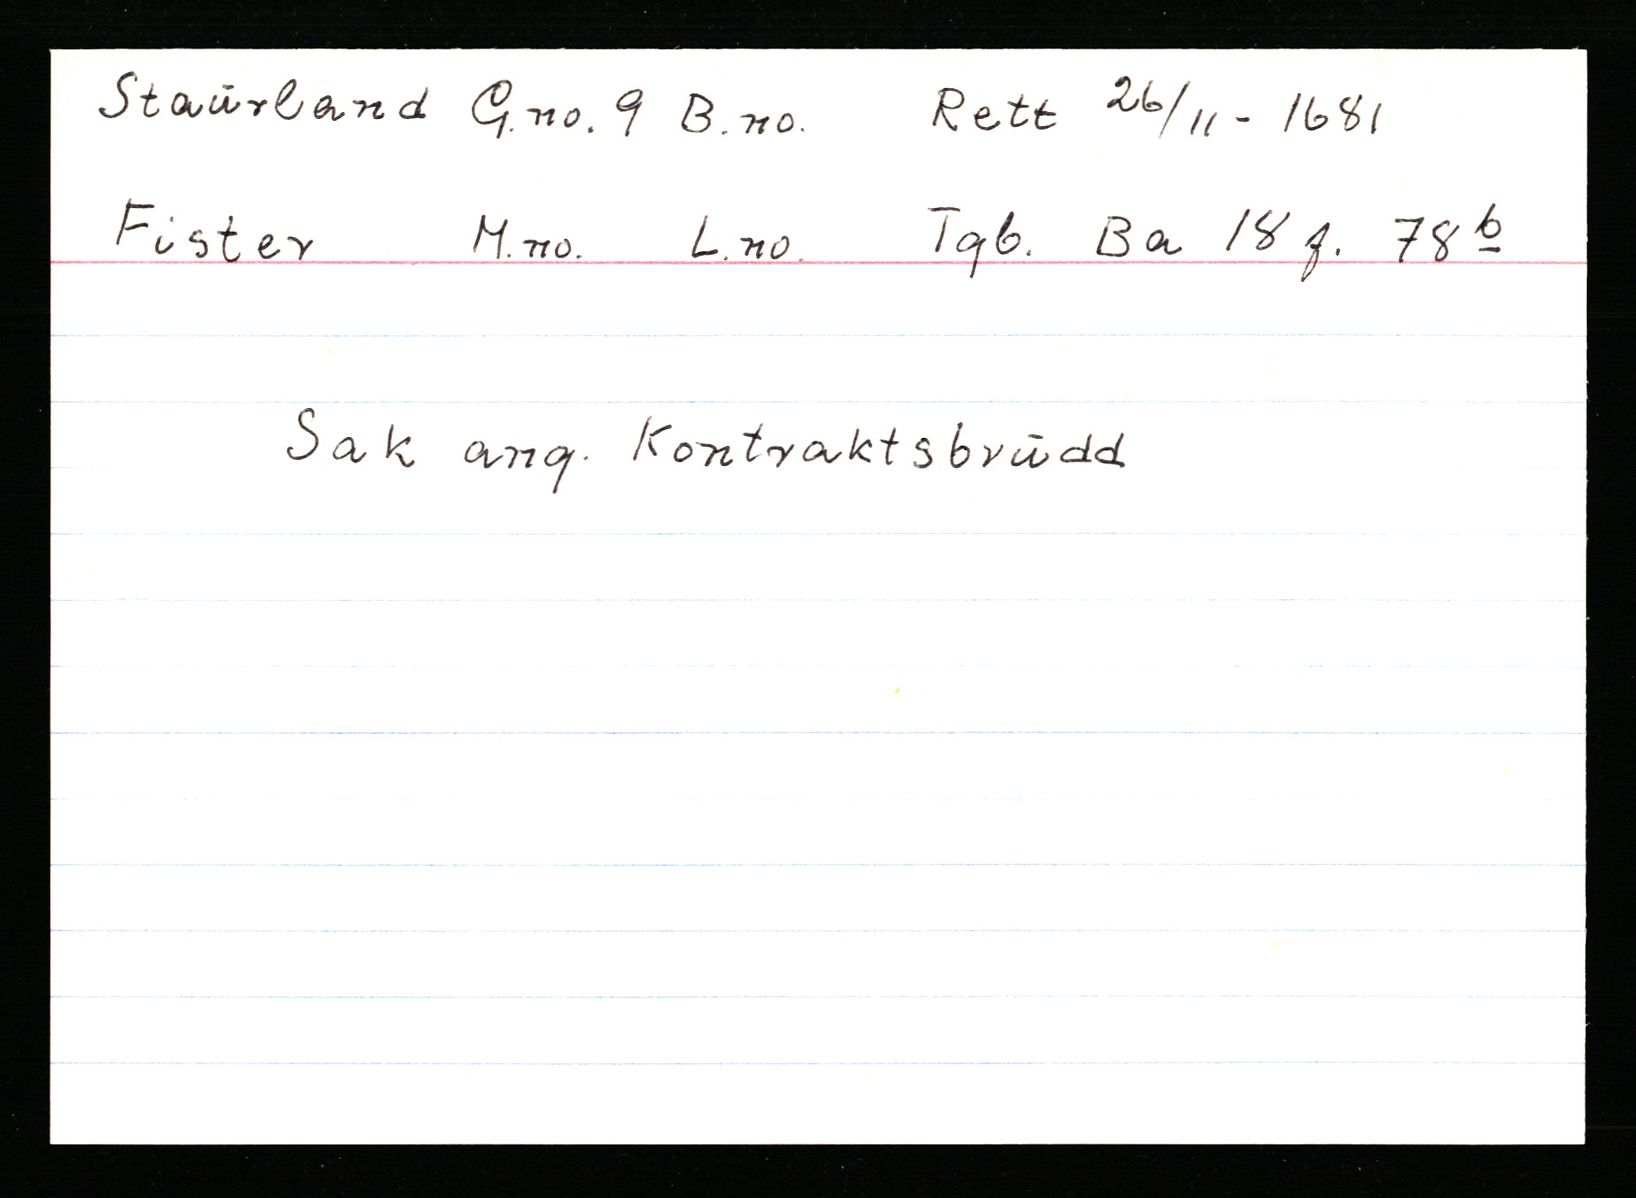 Staurland G.no. 9 B.no. Rett 26/11 - 1681
Fister M.no. L.no. Tgb. Ba 18 f. 78 b
Sak ang. Kontraktsbrudd